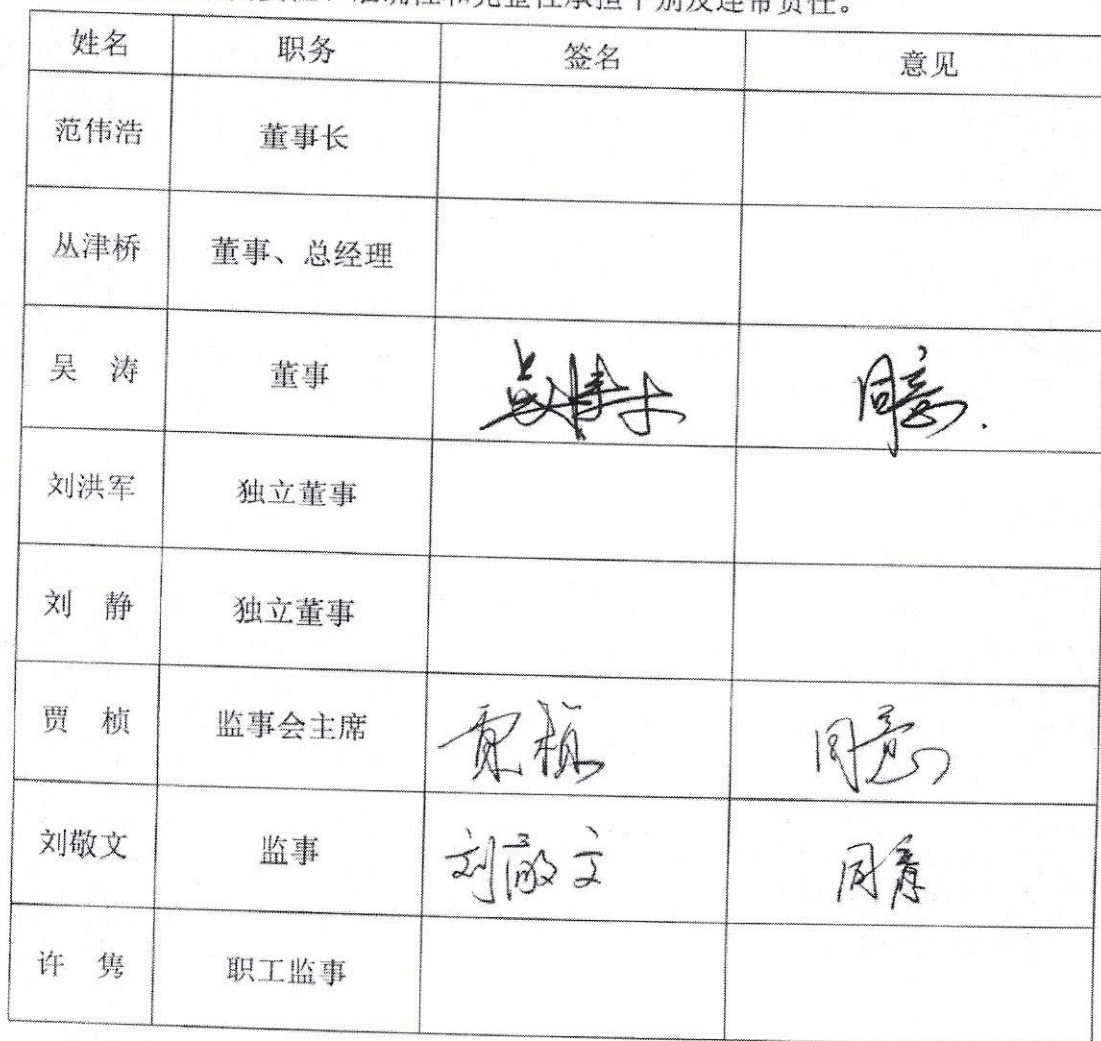 准确性和完整性承担个别及连带责任。
姓名 职务 签名 意见
范伟浩 董事长
丛津桥 董事、总经理
吴 涛 董事 同意.
刘洪军 独立董事
刘 静 独立董事
贾 桢 监事会主席 贾桢 同意
刘敬文 监事 刘敬文 同意
许 隽 职工监事